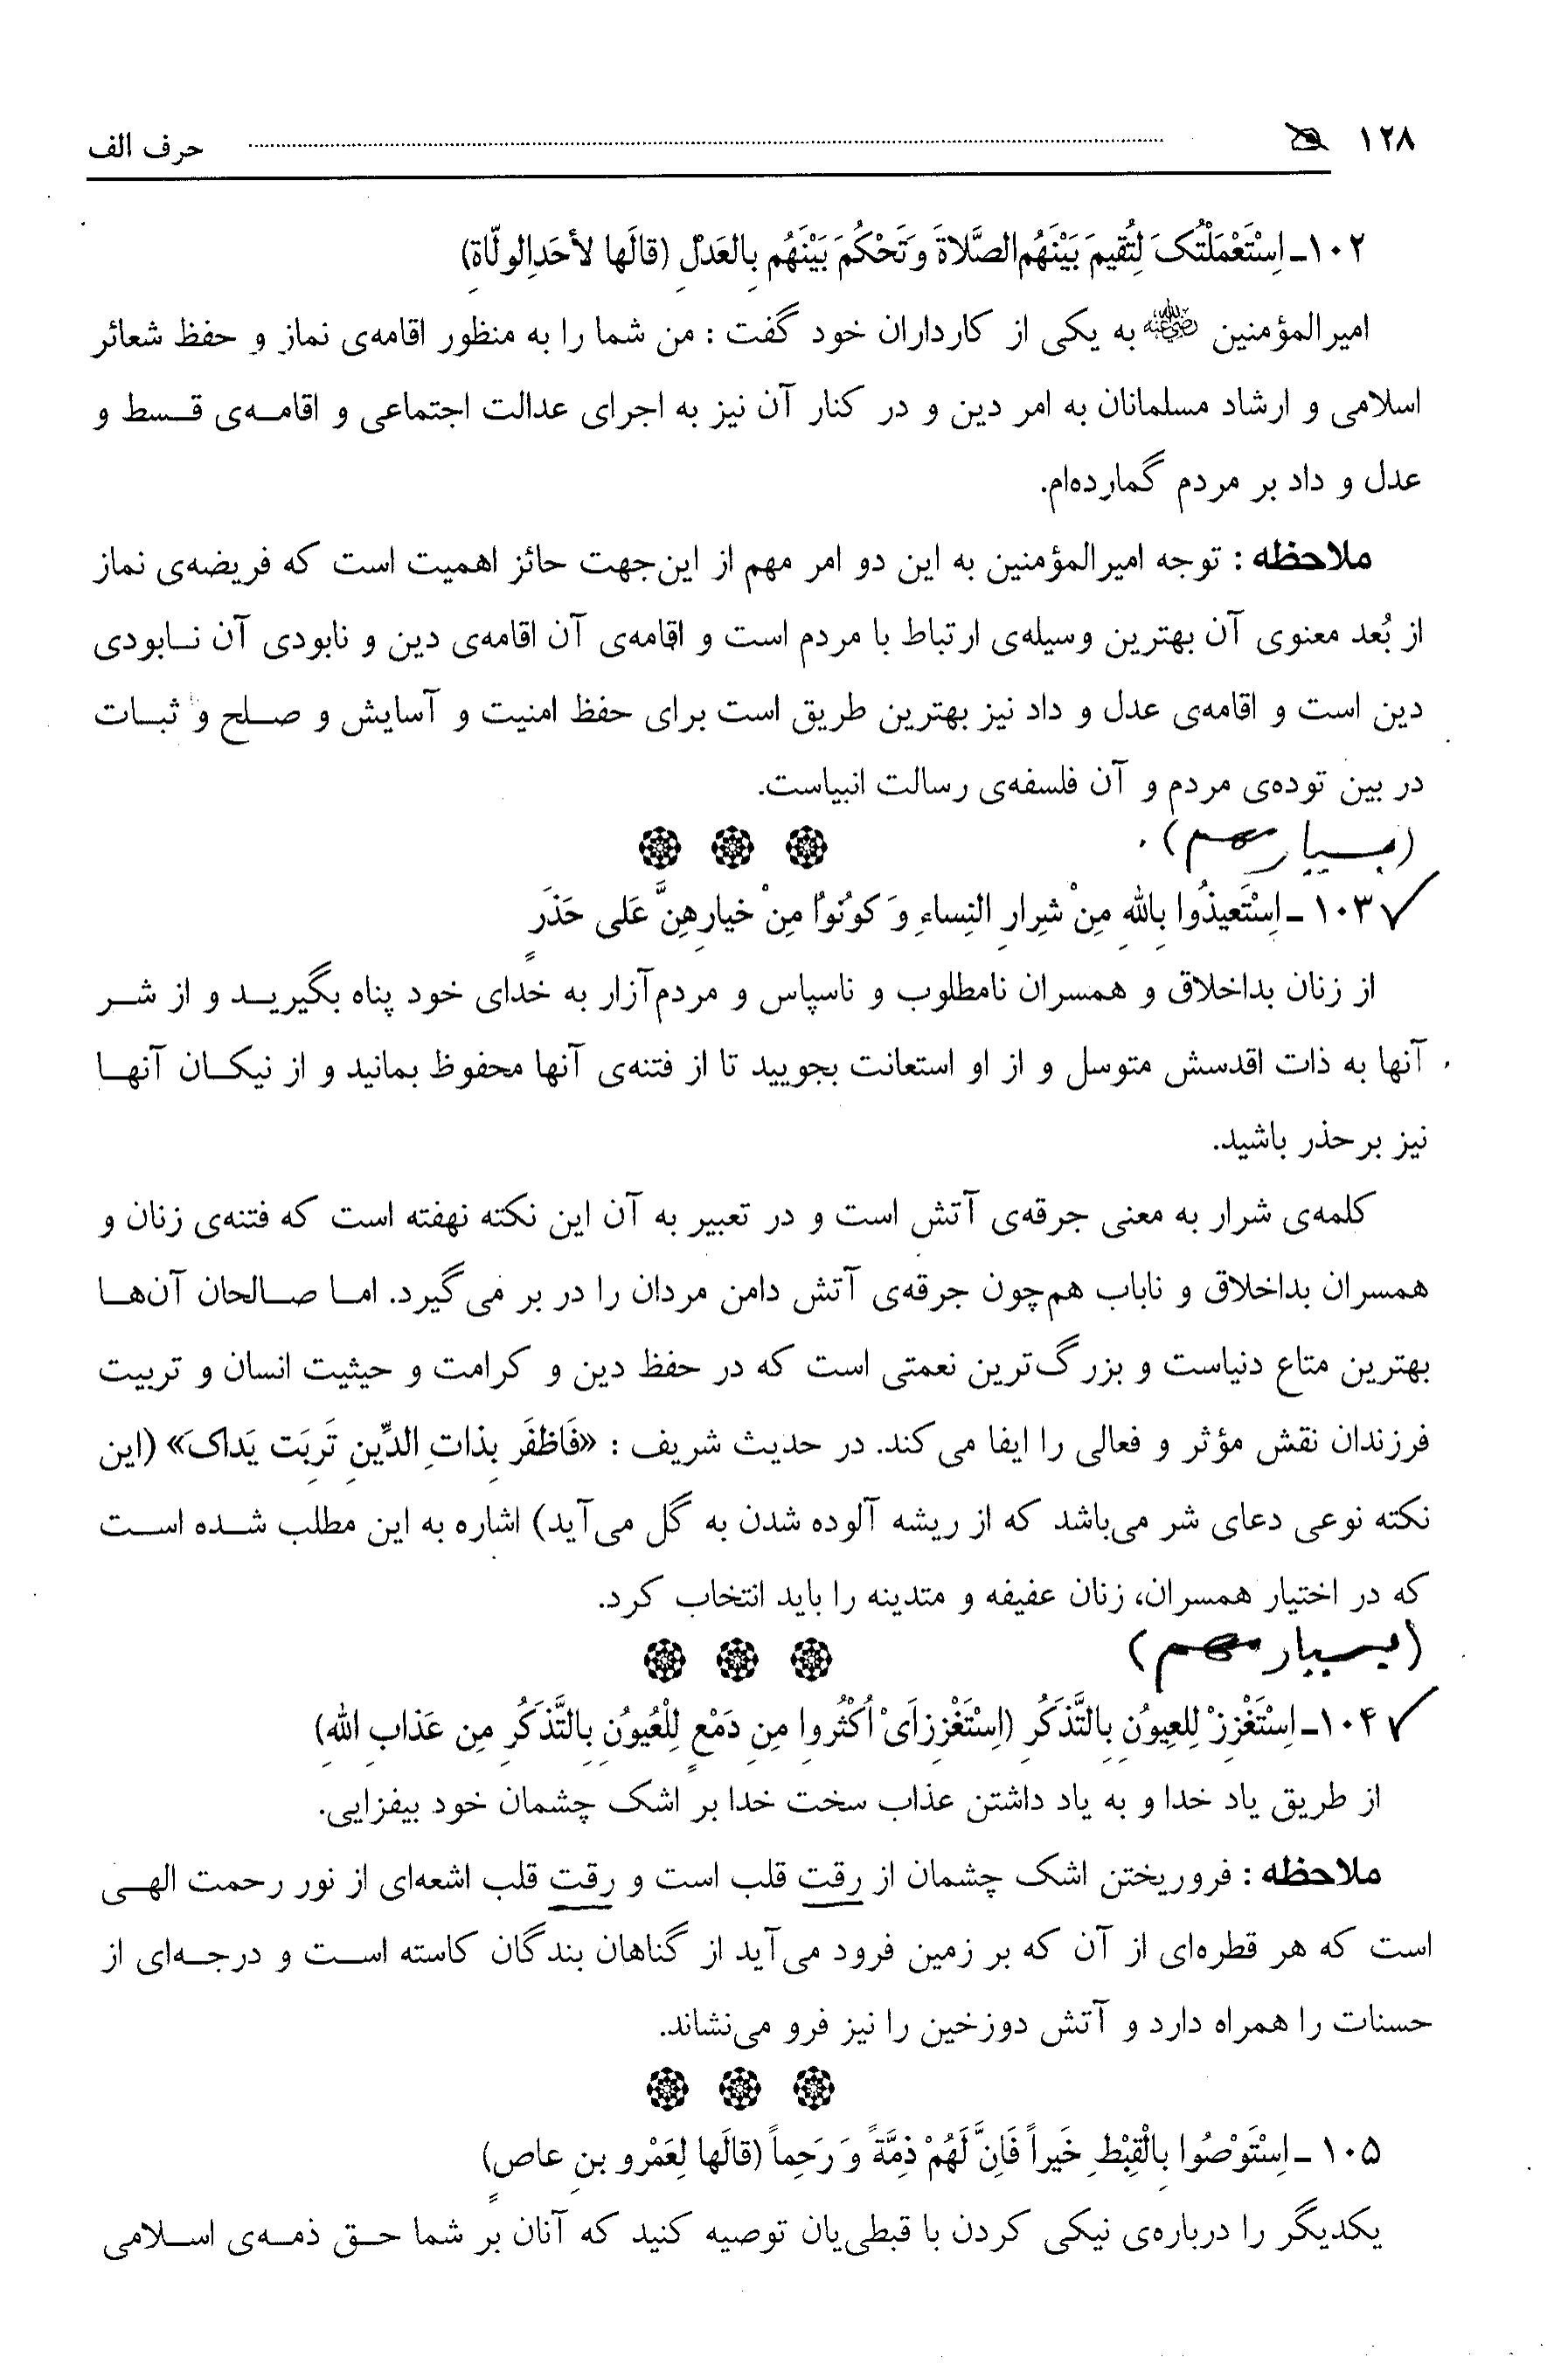 ۱۲۸ حرف الف
۱۰۲ـ اِسْتَعْمَلْتُکَ لِتُقیمَ بَیْنَهُم الصَّلاةَ وَ تَحْکُمَ بَیْنَهُم بِالعَدْلِ (قالَها لأحَدِالولاّةِ)
امیرالمؤمنین رضی الله عنه به یکی از کارداران خود گفت : من شما را به منظور اقامه‌ی نماز و حفظ شعائر
اسلامی و ارشاد مسلمانان به امر دین و در کنار آن نیز به اجرای عدالت اجتماعی و اقامـه‌ی قـسط و
عدل و داد بر مردم گمارده‌ام.
ملاحظه : توجه امیرالمؤمنین به این دو امر مهم از این‌جهت حائز اهمیت است که فریضه‌ی نماز
از بُعد معنوی آن بهترین وسیله‌ی ارتباط با مردم است و اقامه‌ی آن اقامه‌ی دین و نابودی آن نـابودی
دین است و اقامه‌ی عدل و داد نیز بهترین طریق است برای حفظ امنیت و آسایش و صـلح و ثبـات
در بین توده‌ی مردم و آن فلسفه‌ی رسالت انبیاست.
(بسیار مهم)
۱۰۳ ـ اِسْتَعیذُوا بِاللهِ مِنْ شِرارِ النِساءِ وَ کونُوا مِنْ خیارِهِنَّ عَلی حَذَرٍ
از زنان بداخلاق و همسران نامطلوب و ناسپاس و مردم‌آزار به خدای خود پناه بگیریـد و از شـر
آنها به ذات اقدسش متوسل و از او استعانت بجویید تا از فتنه‌ی آنها محفوظ بمانید و از نیکـان آنهـا
نیز برحذر باشید.
کلمه‌ی شرار به معنی جرقه‌ی آتش است و در تعبیر به آن این نکته نهفته است که فتنه‌ی زنان و
همسران بداخلاق و ناباب هم‌چون جرقه‌ی آتش دامن مردان را در بر می‌گیرد. امـا صـالحان آن‌هـا
بهترین متاع دنیاست و بزرگ‌ترین نعمتی است که در حفظ دین و کرامت و حیثیت انسان و تربیت
فرزندان نقش مؤثر و فعالی را ایفا می‌کند. در حدیث شریف : «فَاظفَر بِذاتِ الدِّینِ تَرِبَت یَداکَ» (این
نکته نوعی دعای شر می‌باشد که از ریشه آلوده شدن به گل می‌آید) اشاره به این مطلب شـده اسـت
که در اختیار همسران، زنان عفیفه و متدینه را باید انتخاب کرد.
(بسیار مهم)
۱۰۴ـ اِسْتَغْزِزْ لِلعِیوُنِ بِالتَّذَکُرِ (اِسْتَغْزِزاَیْ اُکْثُروا مِنِ دَمْعٍ لِلْعُیوُنِ بِالتَّذَکُرِ مِن عَذابِ اللهِ)
از طریق یاد خدا و به یاد داشتن عذاب سخت خدا بر اشک چشمان خود بیفزایی.
ملاحظه : فروریختن اشک چشمان از رقت قلب است و رقت قلب اشعه‌ای از نور رحمت الهـی
است که هر قطره‌ای از آن که بر زمین فرود می‌آید از گناهان بندگان کاسته اسـت و درجـه‌ای از
حسنات را همراه دارد و آتش دوزخین را نیز فرو می‌نشاند.
۱۰۵ ـ اِسْتَوْصُوا بِالْقِبْطِ خَیراً فَاِنَّ لَهُمْ ذِمَّةً وَ رَحِماً (قالَها لِعَمْرو بنِ عاصٍ)
یکدیگر را درباره‌ی نیکی کردن با قبطی‌یان توصیه کنید که آنان بر شما حـق ذمـه‌ی اسـلامی